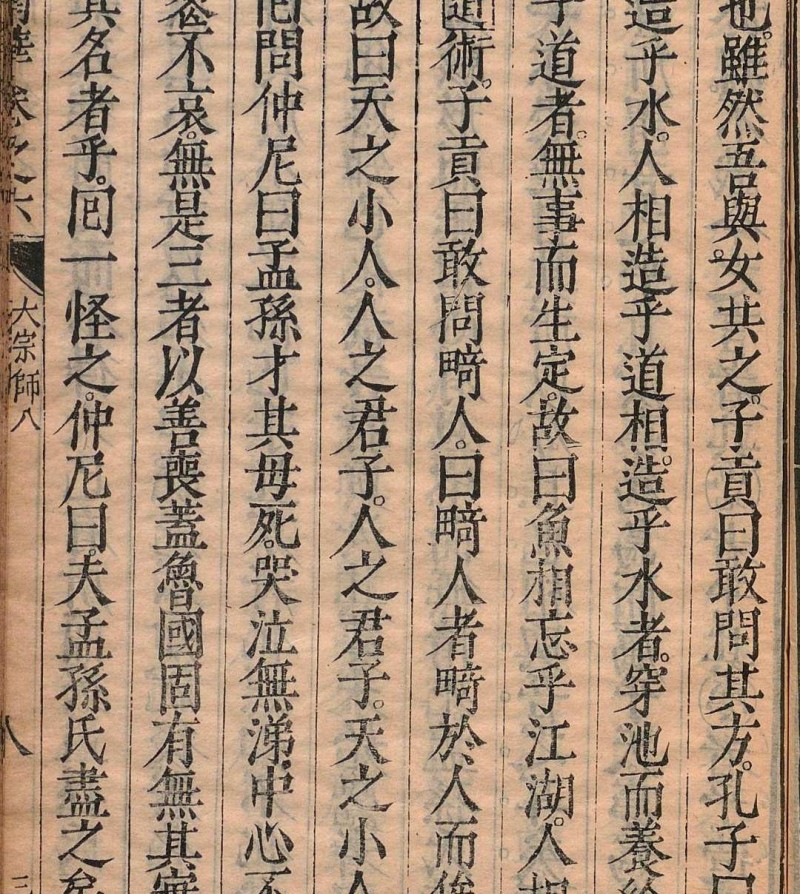 也。雖然吾與女共之。子貢曰敢問其方。孔子曰
造乎水。人相造乎道相。造乎水者。穿池而養
乎道者。無事而生定。故曰魚相忘乎江湖。人相
道術。子貢曰敢問畸人。曰畸人者畸於人而侔
故曰天之小人。人之君子。人之君子。天之小人
囘問仲尼曰孟孫才其母死。哭泣無涕。中心不
不哀。無是三者以善喪蓋魯國固有無其實
其名者乎。囘一怪之。仲尼曰。夫孟孫氏盡之矣
大宗師八